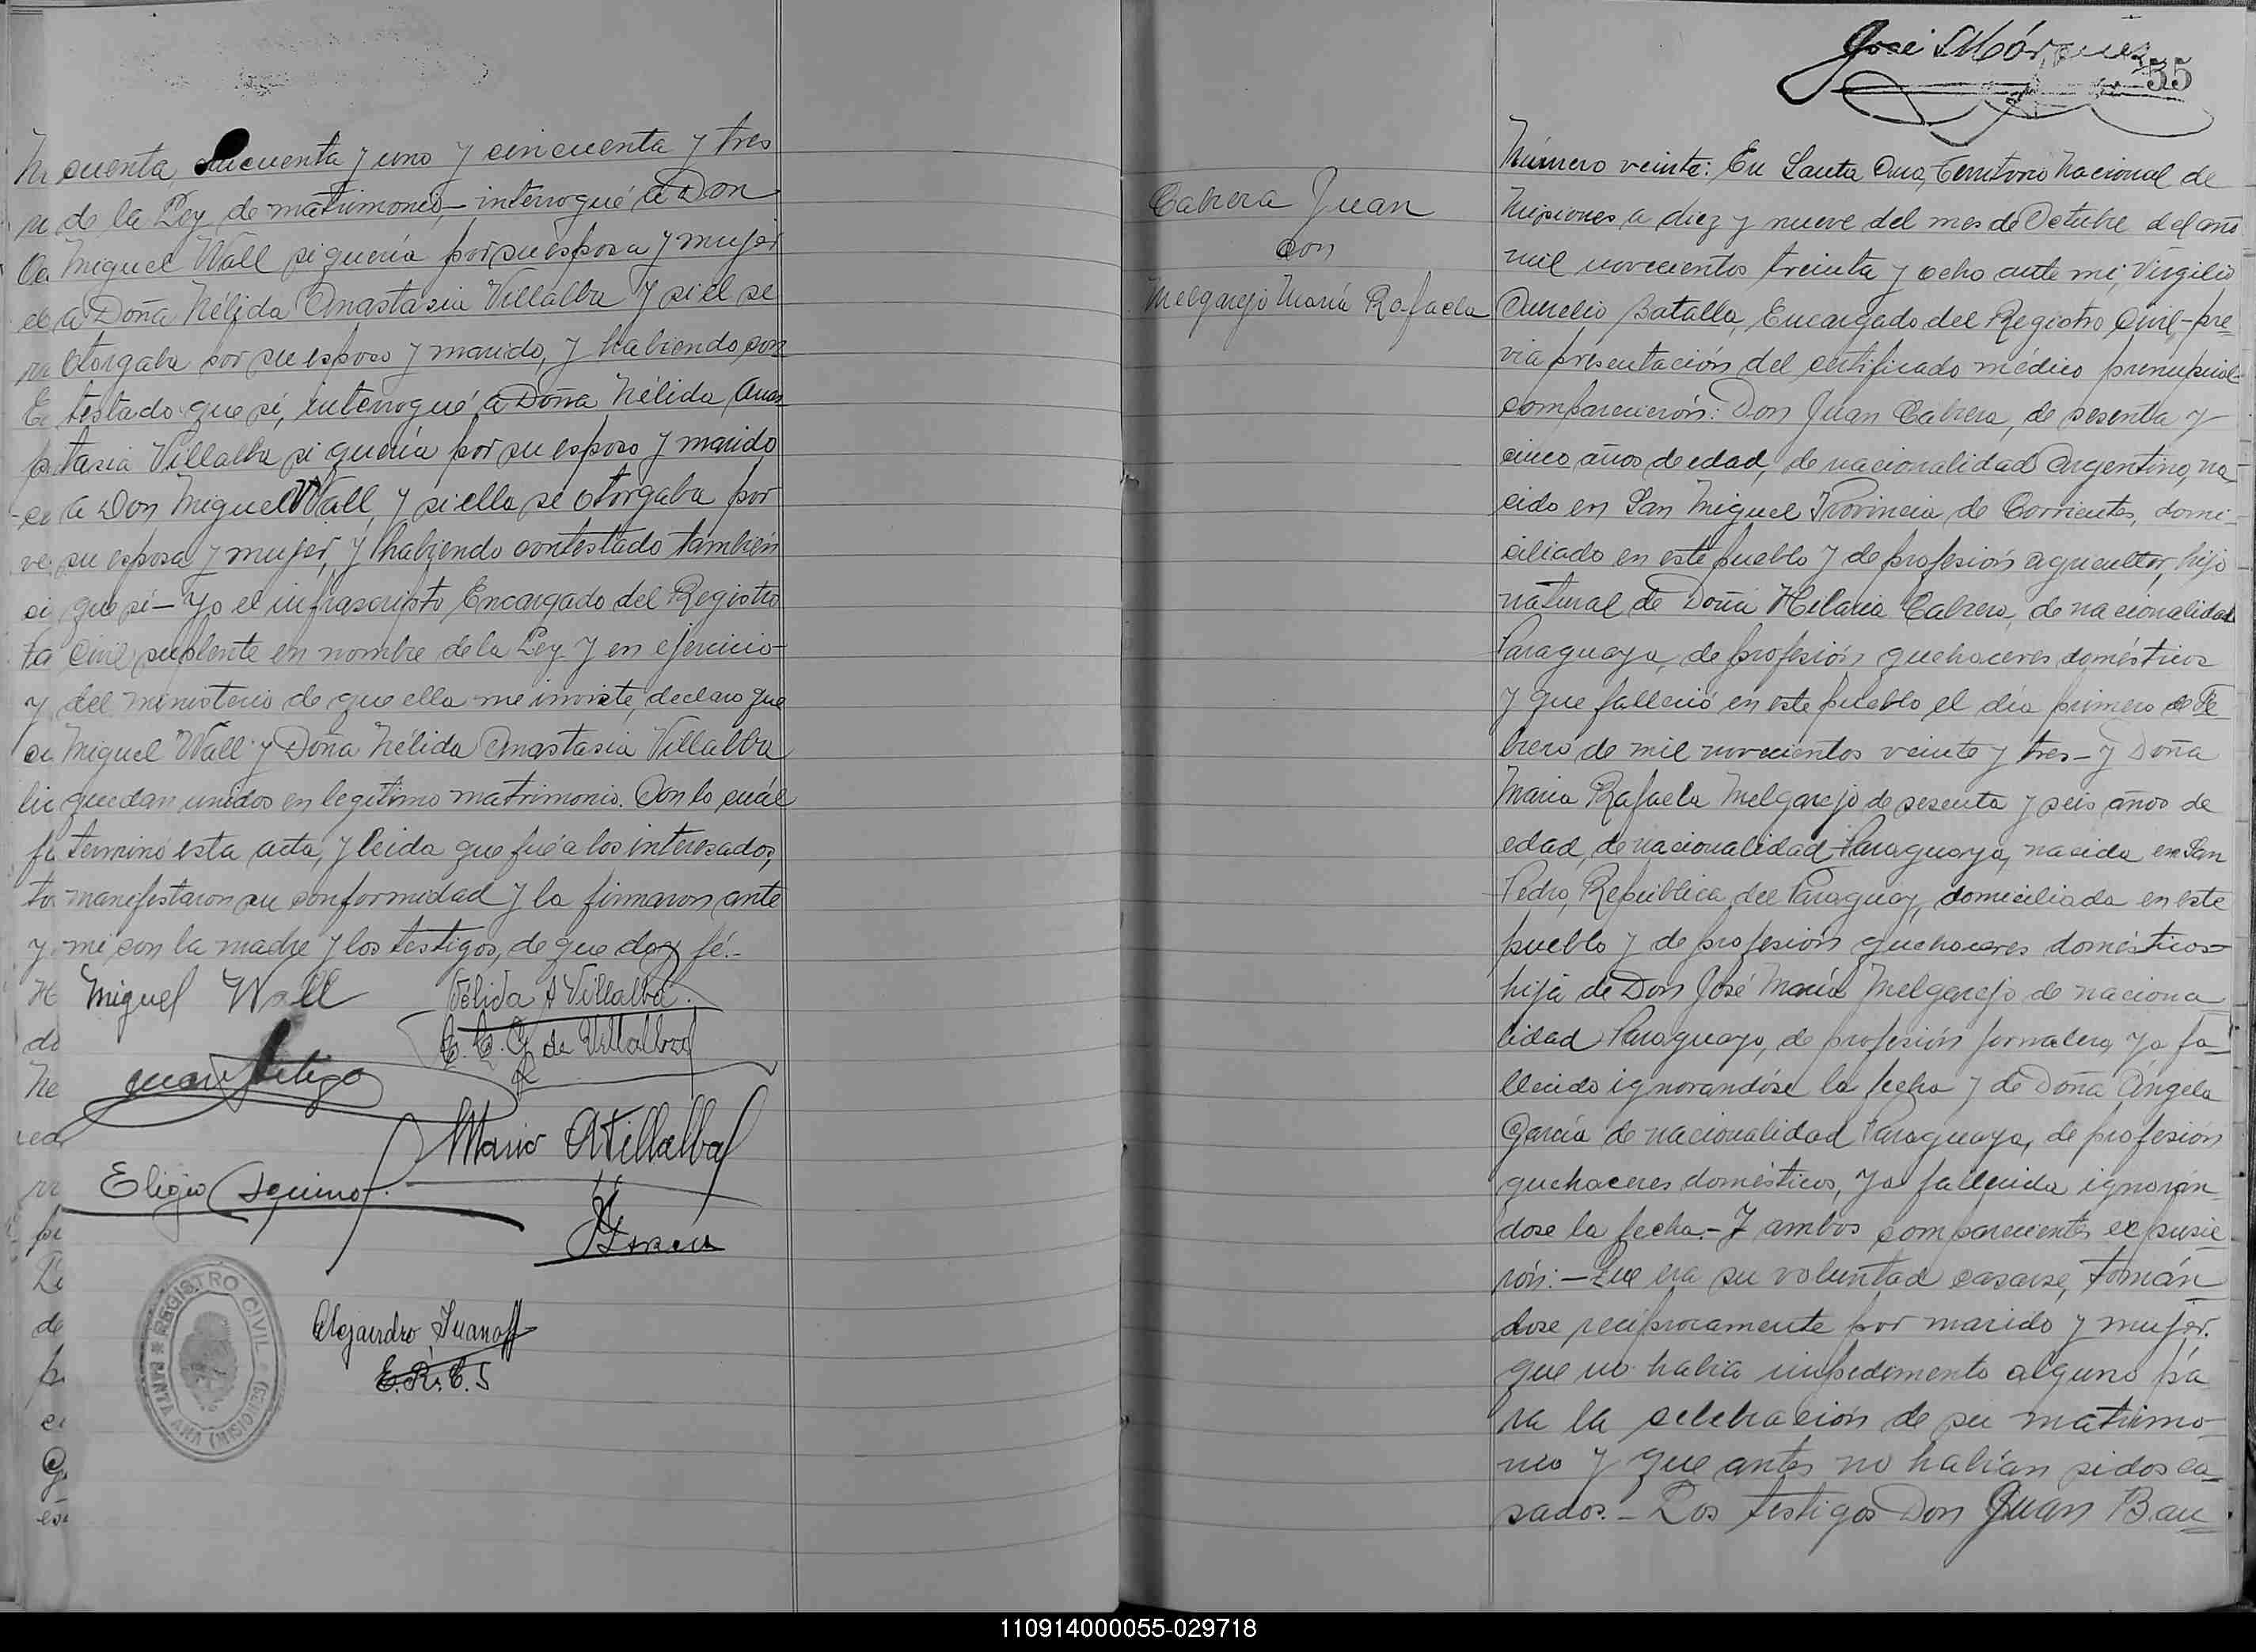 cuenta, cincuenta y uno y cincuenta y tres
de la Ley de matrimonio, – interrogué á Don
Miguel Wall si quería por su esposa y mujer
a Doña Nélida Anastasia Villalba y si el se
otorgaba por su esposo y marido, y habiendo con
testado que sí, interrogué a Doña Nélida Anas
tasia Villalba si quería por su esposo y marido
a Don Miguel Wall, y si ella se otorgaba por
su esposa y mujer, y habiendo contestado también
que sí – Yo el infrascripto Encargado del Registro
Civil suplente en nombre de la Ley y en ejercicio
del ministerio de que ella me inviste, declaro que
Miguel Wall y Doña Nélida Anastasia Villalba
quedan unidos en legítimo matrimonio. Con lo cuál
terminó esta acta, y leida que fué a los interesados,
manifestaron su conformidad y la firmaron ante
mi con la madre y los testigos, de que doy fé.-
Miguel Wall
Nélida A Villalba.
E. C. G de Villalba
Mario A Villalba
Eligio Aquino
Alejandro Iuanoff
E. R. C. S
REGISTRO CIVIL
SANTA ANA (MISIONES)
José Márquez
55
Cabrera Juan
con
Melgarejo María Rafaela
Número veinte: En Santa Ana, Territorio Nacional de
Misiones a diez y nueve del mes de Octubre del año
mil novecientos treinta y ocho ante mi, Virgilio
Aurelio Batalla, Encargado del Registro Civil, – pre-
via presentación del certificado médico prenupcial-
comparecieron: Don Juan Cabrera, de sesenta y
cinco años de edad, de nacionalidad Argentino, na-
cido en San Miguel Provincia de Corrientes, domi-
ciliado en este pueblo y de profesión agricultor, hijo
natural de Doña Hilaria Cabrera, de nacionalidad
Paraguaya, de profesión quehaceres domésticos
y que falleció en este pueblo el día primero de Fe
brero de mil novecientos veinte y tres – y Doña
María Rafaela Melgarejo de sesenta y seis años de
edad, de nacionalidad Paraguaya, nacida en San
Pedro, República del Paraguay, domiciliada en este
pueblo y de profesión quehaceres domésticos –
hija de Don José María Melgarejo de naciona
lidad Paraguayo, de profesión jornalero, ya fa-
llecido ignorandóse la fecha y de Doña Angela
García de nacionalidad Paraguaya, de profesión
quehaceres domésticos, ya fallecida ignorán-
dose la fecha. – Y ambos comparecientes expusie-
rón: – Que era su voluntad casarse, tomán-
dose reciprocamente por marido y mujer.
que no había impedimento alguno pa
ra la celebración de su matrimo-
nio y que antes no habían sidos ca-
sados. – Los testigos Don Juan Bau-
110914000055-029718